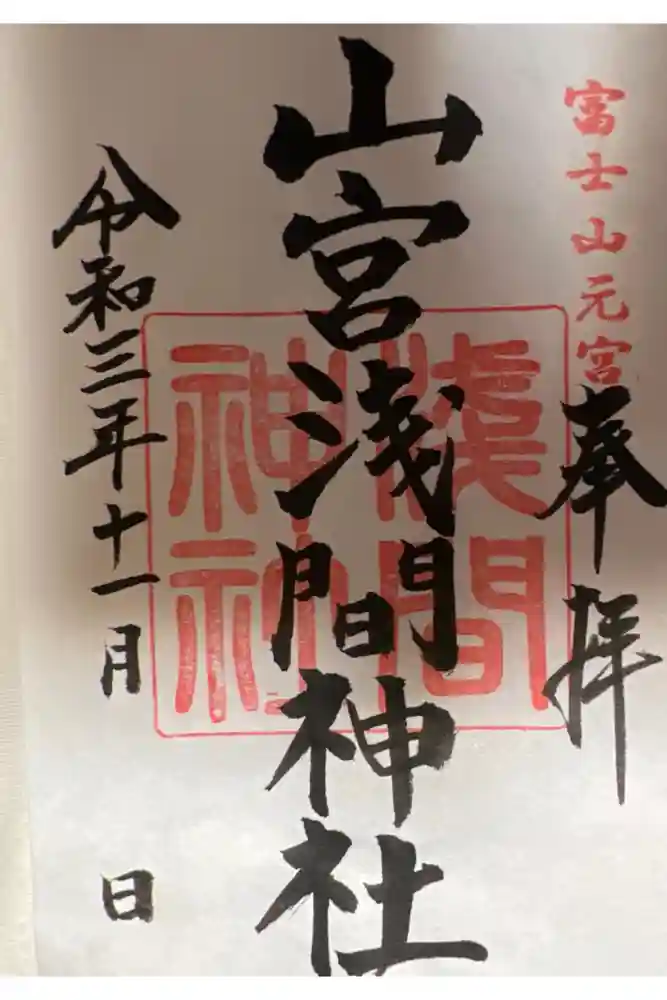 富士山元宮
奉拝
山宮浅間神社
浅間
神社
令和三年十一月 日